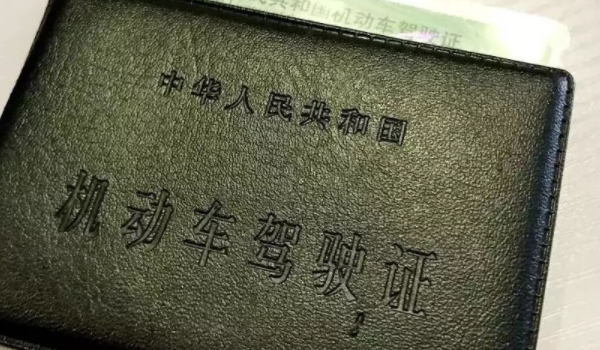 民共和国机动车驾驶证
中华人民共和国
机动车驾驶证